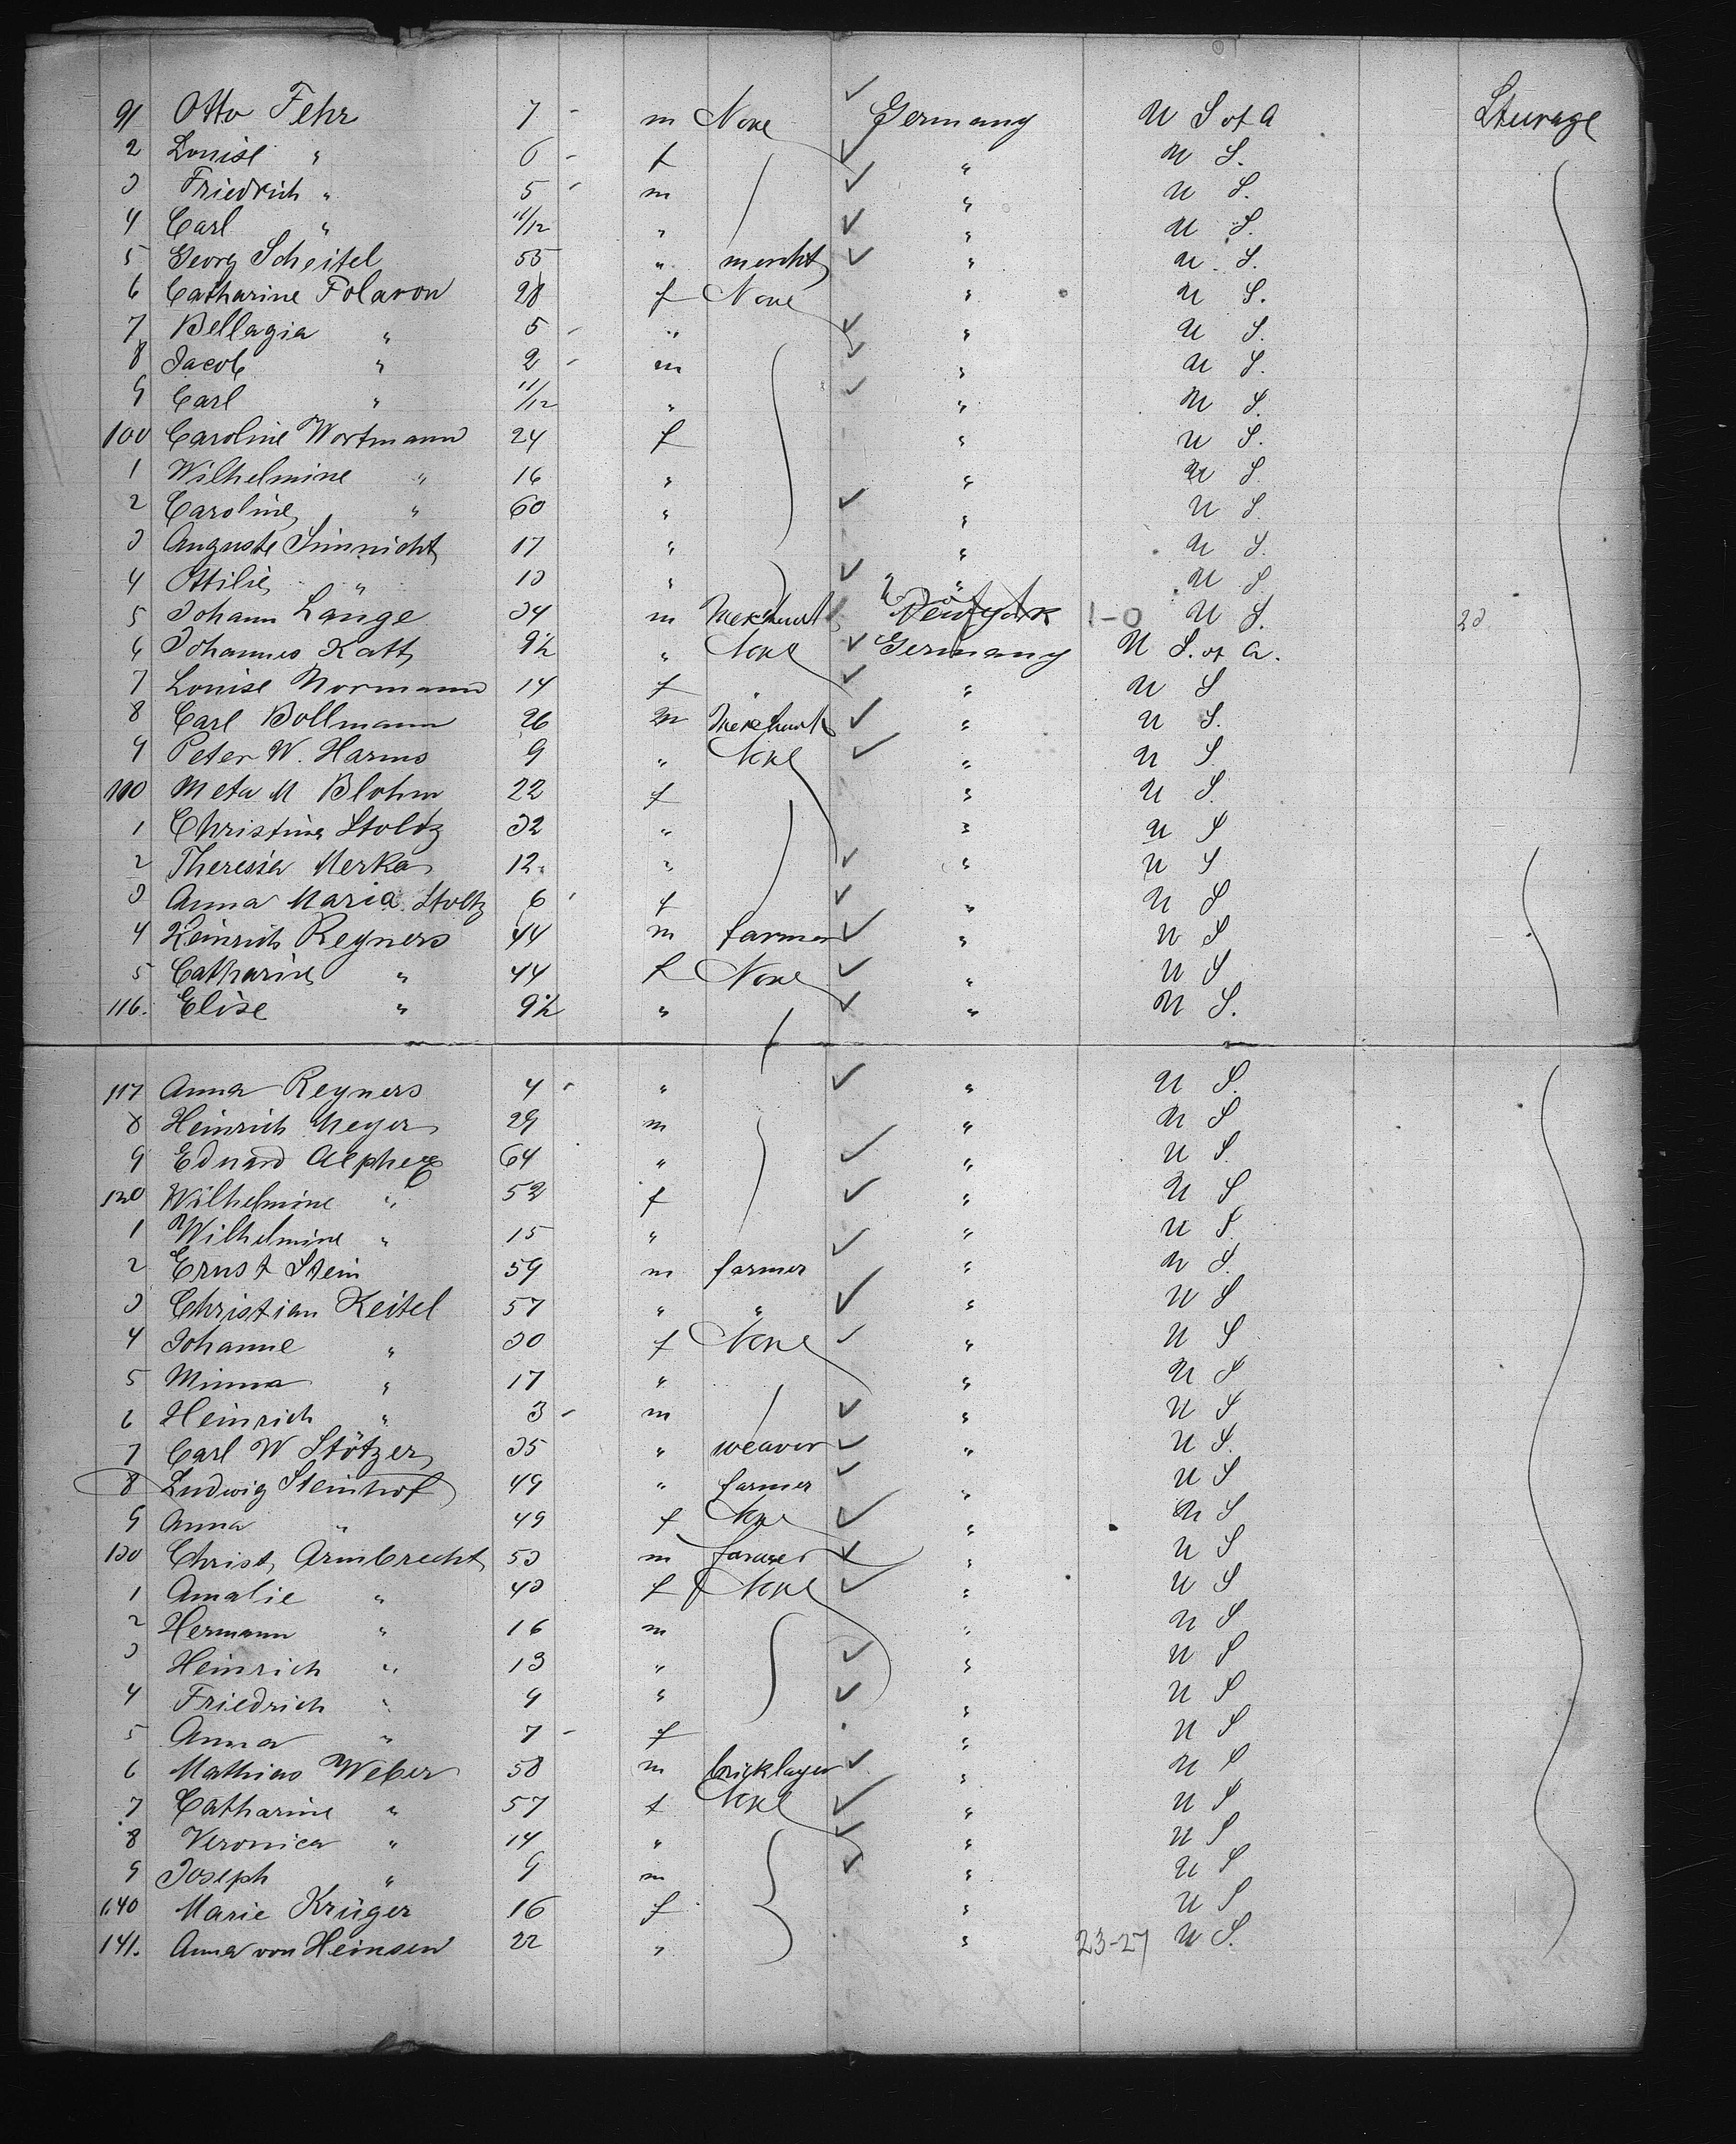 91 Otto Fehr 7 - m None ✓ Germany U S of A Steurage
2 Louise " 6 - f ✓ " U S.
3 Friedrich " 5 - m ✓ " U S.
4 Carl " 11/12 " ✓ " U S.
5 Georg Scheitel 55 " mercht ✓ " U. S.
6 Catharine Folaron 28 f None " U S.
7 Bellagia " 5 - " ✓ " U S.
8 Jacob " 2 - m ✓ " U S.
9 Carl " 11/12 " ✓ " U S.
100 Caroline Wortmann 24 f " U S.
1 Wilhelmine " 16 " " U S.
2 Caroline " 60 " ✓ " U S
3 Auguste Simnicht 17 " " U S.
4 Ottilie " 13 " ✓ " U S
5 Johann Lange 34 m Merchant Newyork 1-0 U S. 23
6 Johannes Katt 9½ " None ✓ Germany U S. of A.
7 Louise Normann 14 f ✓ " U S
8 Carl Bollmann 26 m Merchant ✓ " U S.
9 Peter W. Harms 9 " None ✓ " U S.
110 Meta M Blohm 22 f " U S.
1 Christine Stoltz 32 " " U S
2 Theresia Merka 12 " ✓ " U S
3 Anna Maria Stoltz 6 - f ✓ " U S
4 Heinrich Reyners 44 m farmer ✓ " U S
5 Catharine " 44 f None ✓ " U S
116. Elise " 9½ " ✓ " U S.
117 Anna Reyners 4 - " ✓ " U S.
8 Heinrich Meyer 29 m " U S
9 Eduard 64 " ✓ " U S.
120 Wilhelmine " 52 f ✓ " U S
1 Wilhelmine " 15 " " U S.
2 Ernst Stein 59 m farmer ✓ " U S.
3 Christian Keitel 57 " " ✓ " U S
4 Johanne " 30 f None ✓ " U S
5 Minna " 17 " " U S
6 Heinrich " 3 - m ✓ " U S
7 Carl W Stötzer 35 " weaver ✓ " U S.
8 Ludwig Steinhof 49 " farmer ✓ " U S
9 Anna " 49 f None ✓ " U S
130 Christ. Armbrecht 53 m farmer ✓ " U S
1 Amalie " 43 f None ✓ " U S
2 Hermann " 16 m " U S
3 Heinrich " 13 " ✓ " U S
4 Friedrich " 9 " ✓ " U S
5 Anna " 7 - f " U S
6 Mathias Weber 58 m bricklayer ✓ " U S
7 Catharine " 57 f None ✓ " U S
8 Veronica " 14 " ✓ " U S
9 Joseph " 9 m ✓ " U S
140 Marie Krüger 16 f " U S
141. Anna von Heinsen 22 " " 23-27 U S.